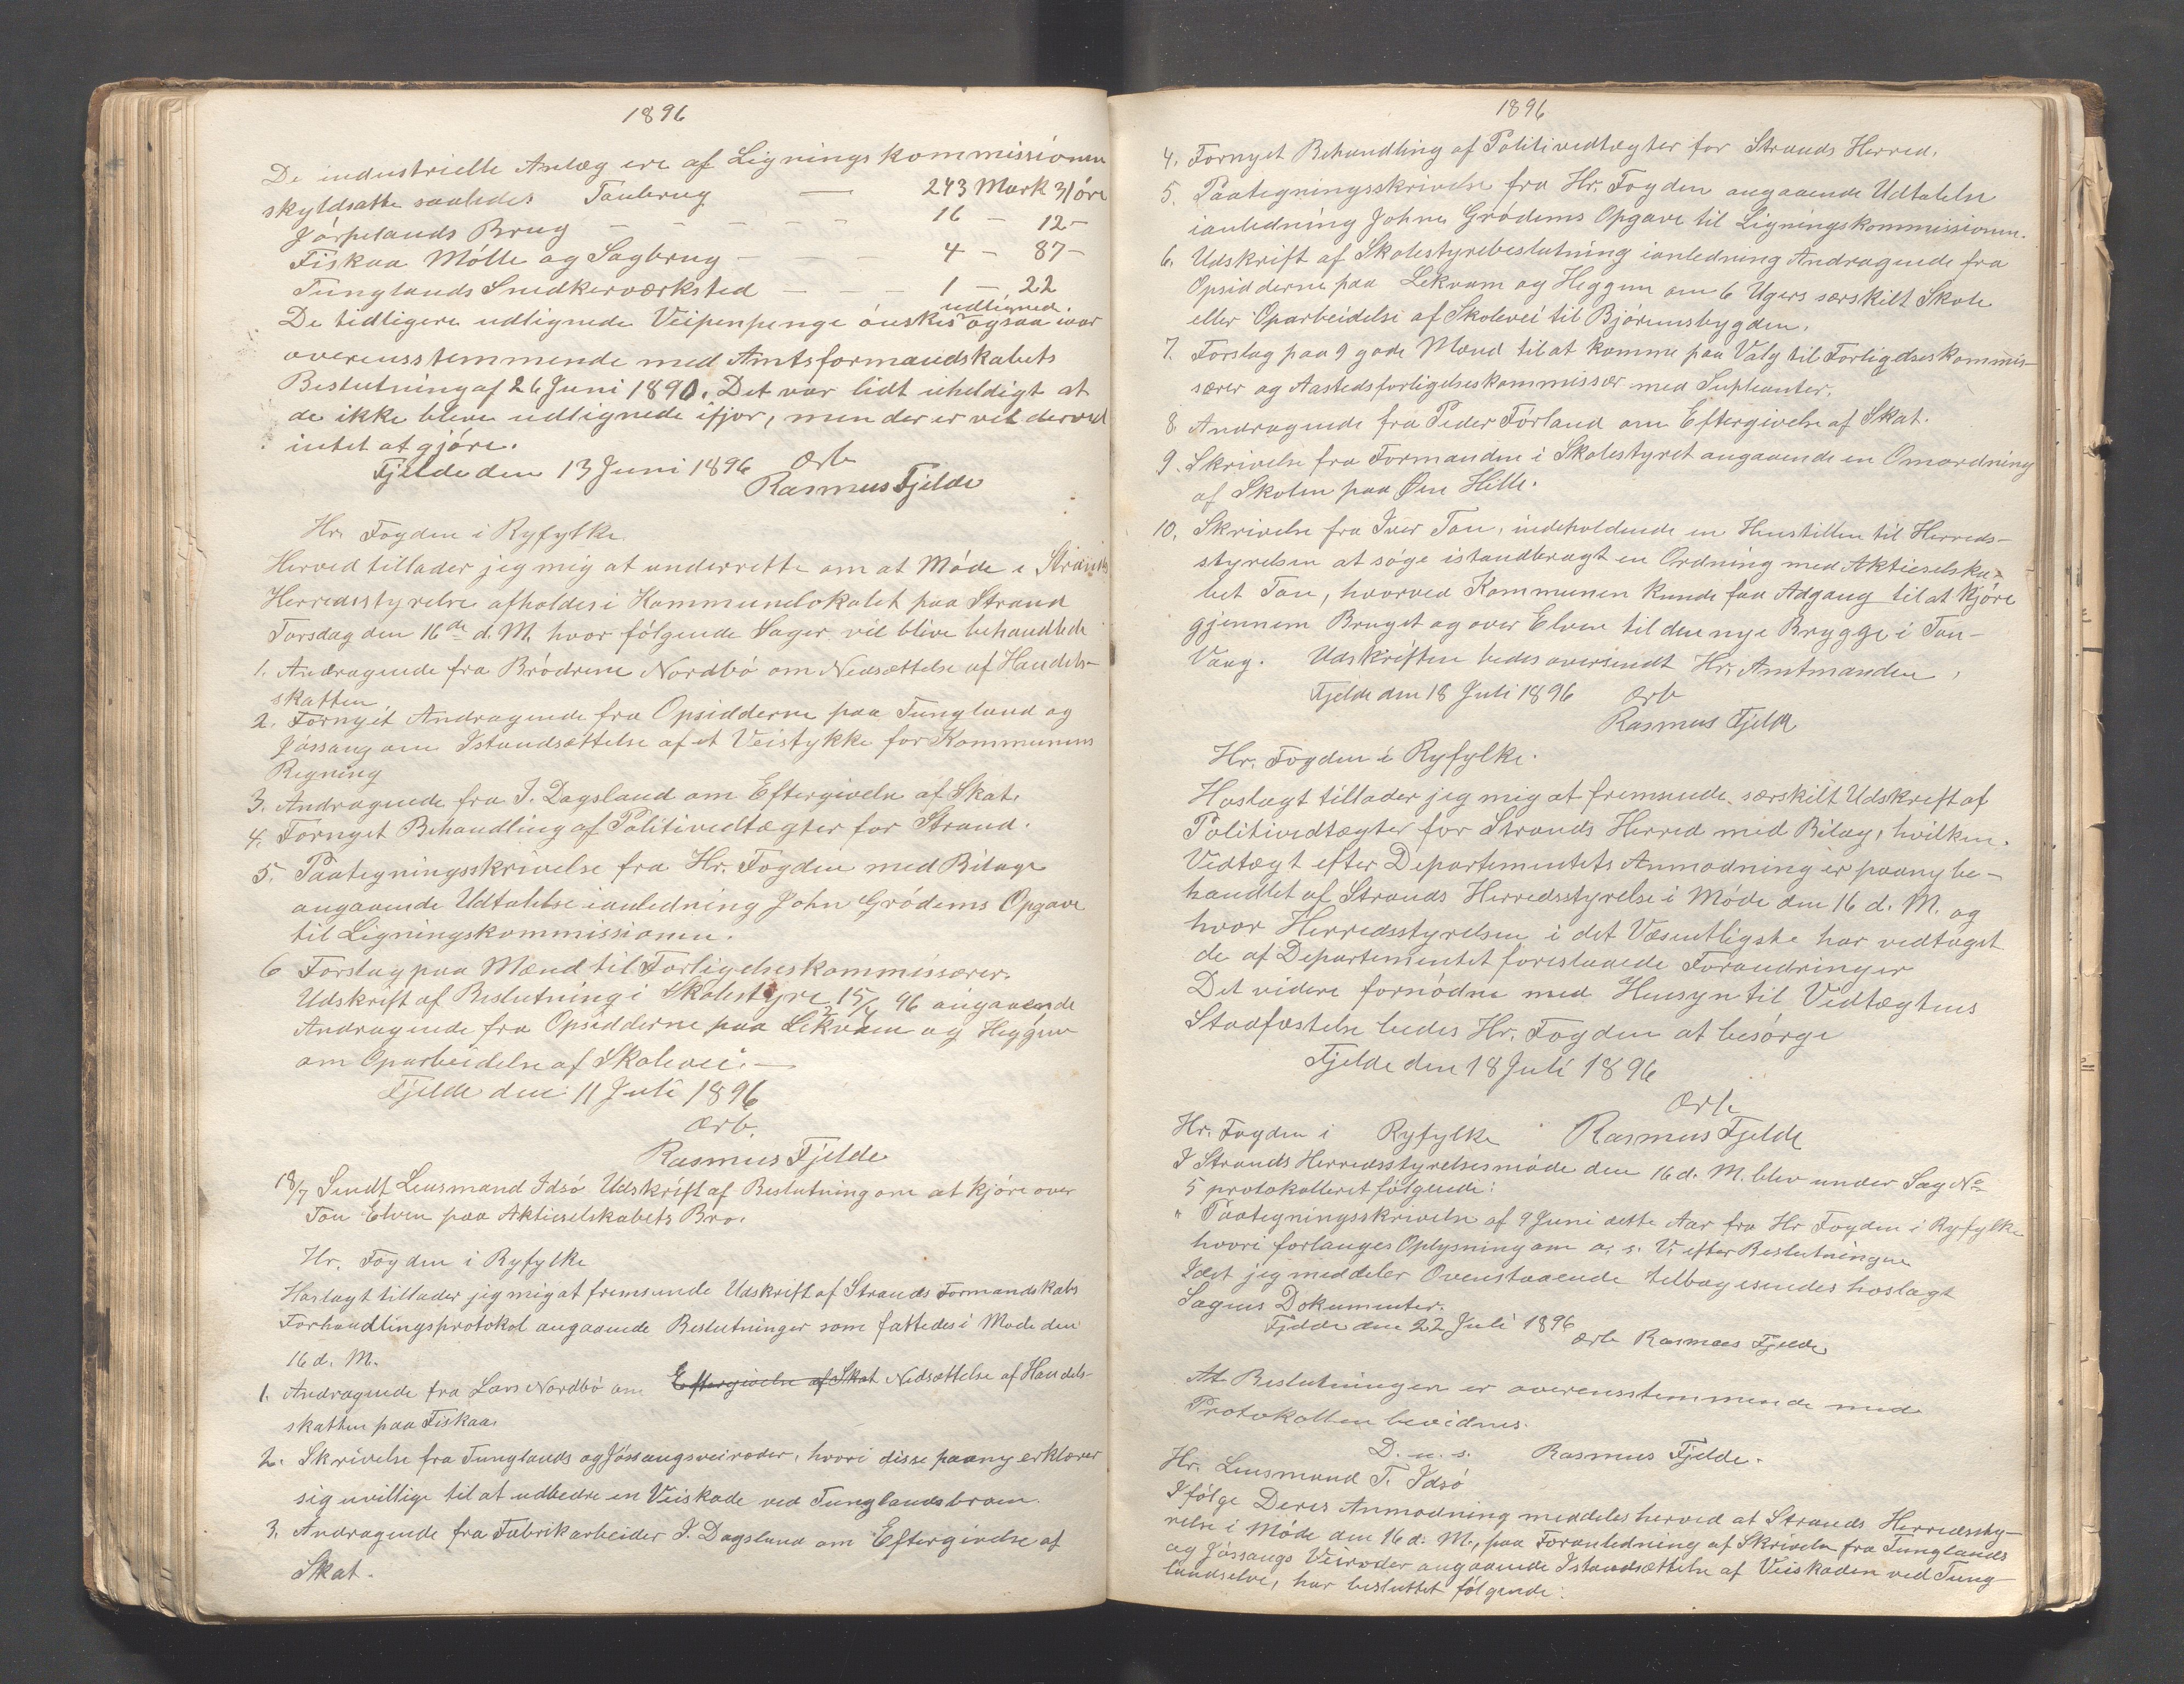 1896
De industrielle Anlæg ere af Ligningskommissionen
skyldsatte saaledes Taubrug — 243 Mark 31 øre
Jørpelands Brug - - - - - 16 - 12 -
Fiskaa Mølle og Sagbrug - - - - 4 - 87 -
Tunglands Snedkerværksted - - - 1 - 22
udlignede
De tidligere udlignede Veipenpenge ønskes ogsaa iaar
overensstemmende med Amtsformandskabets
Beslutning af 26 Juni 1890. Det var lidt uheldigt at
de ikke bleve udlignede ifjor, men der er vel derved
intet at gjøre.
Fjelde den 13 Juni 1896 Ærb
Rasmus Fjelde
Hr. Fogden i Ryfylke.
Herved tillader jeg mig at underrette om at Møde i Strands
Herredsstyrelse afholdes i Kommunelokalet paa Strand
Torsdag den 16de d. M. hvor følgende Sager vil blive behandlede
1. Andragende fra Brødrene Nordbø om Nedsættelse af Handels-
skatten
2. Fornyet Andragende fra Opsidderne paa Tungland og
Jøssang om Istandsættelse af et Veistykke for Kommunens
Regning
3. Andragende fra J. Dagsland om Eftergivelse af Skat.
4. Fornyet Behandling af Politivedtægter for Strand.
5. Paategningsskrivelse fra Hr. Fogden med Bilage
angaaende Udtalelse ianledning John Grødems Opgave
til Ligningskommissionen.
6 Forslag paa Mænd til Forligelseskommissærer.
Udskrift af Beslutning i Skolestyre 15/4 96 angaaende
Andragende fra Opsidderne paa Lekvam og Heggen
om Oparbeidelse af Skolevei. —
Fjelde den 11 Juli 1896
Ærb.
Rasmus Fjelde
18/7 Sendt Lensmand Idsø Udskrift af Beslutning om at kjøre over
Tou Elven paa Aktieselskabets Bro.
Hr. Fogden i Ryfylke
Hoslagt tillader jeg mig at fremsende Udskrift af Strands Formandskabs
Forhandlingsprotokol angaaende Beslutninger som fattedes i Møde den
16 d. M.
1. Andragende fra Lars Nordbø om Eftergivelse af Skat Nedsættelse af Handels-
skatten paa Fiskaa.
2. Skrivelse fra Tunglands og Jøssangsveiroder, hvori disse paany erklærer
sig uvillige til at udbedre en Veiskade ved Tunglandsbroen.
3. Andragende fra Fabrikarbeider J. Dagsland om Eftergivelse af
Skat.
1896
4. Fornyet Behandling af Politivedtægter for Strands Herred.
5. Paategningsskrivelse fra Hr. Fogden angaaende Udtalelse
ianledning Johne Grødems Opgave til Ligningskommissionen.
6. Udskrift af Skolestyrebeslutning ianledning Andragende fra
Opsidderne paa Lekvam og Heggen om 6 Ugers særskilt Skole
eller Oparbeidelse af Skolevei til Bjøreimsbygden.
7. Forslag paa 9 gode Mænd til at komme paa Valg til Forligelseskommis-
særer og Aastedsforligelseskommissær med Supleanter.
8. Andragende fra Peder Førland om Eftergivelse af Skat.
9. Skrivelse fra Formanden i Skolestyret angaaende en Omordning
af Skolen paa Øvre Helle.
10. Skrivelse fra Iver Tou, indeholdende en Henstillen til Herreds-
styrelsen at søge istandbragt en Ordning med Aktieselska-
bet Tou, hvorved Kommunen kunde faa Adgang til at kjøre
gjennem Bruget og over Elven til den nye Brygge i Tou-
Vaag. Udskriften bedes oversendt Hr. Amtmanden.
Fjelde den 18 Juli 1896 Ærb
Rasmus Fjelde
Hr. Fogden i Ryfylke.
Hoslagt tillader jeg mig at fremsende særskilt Udskrift af
Politivedtægter for Strands Herred med Bilag, hvilken
Vedtægt efter Departementets Anmodning er paany be-
handlet af Strands Herredsstyrelse i Møde den 16 d. M. og
hvor Herredsstyrelsen i det Væsentligste har vedtaget
de af Departementet foreslaaede Forandringer
Det videre fornødne med Hensyn til Vedtægtens
Stadfæstelse bedes Hr. Fogden at besørge
Fjelde den 18 Juli 1896
Ærb
Hr. Fogden i Ryfylke Rasmus Fjelde
I Strands Herredsstyrelsesmøde den 16 d. M. blev under Sag No
5 protokolleret følgende:
" Paategningsskrivelse af 9 Juni dette Aar fra Hr Fogden i Ryfylke
hvori forlanges Oplysning om o. s. v. efter Beslutningen
Idet jeg meddeler Ovenstaaende tilbagesendes hoslagt
Sagens Dokumenter.
Fjelde den 22 Juli 1896
Ærb Rasmus Fjelde
At Beslutningen er overensstemmende med
Protokollen bevidnes.
D. u. s. Rasmus Fjelde.
Hr. Lensmand T. Idsø
Ifølge Deres Anmodning meddeles herved at Strands Herredssty-
relse i Møde den 16 d. M., paa Foranledning af Skrivelse fra Tunglands
og Jøssangs Veiroder angaaende Istandsættelse af Veiskaden ved Tung-
landselve, har besluttet følgende: